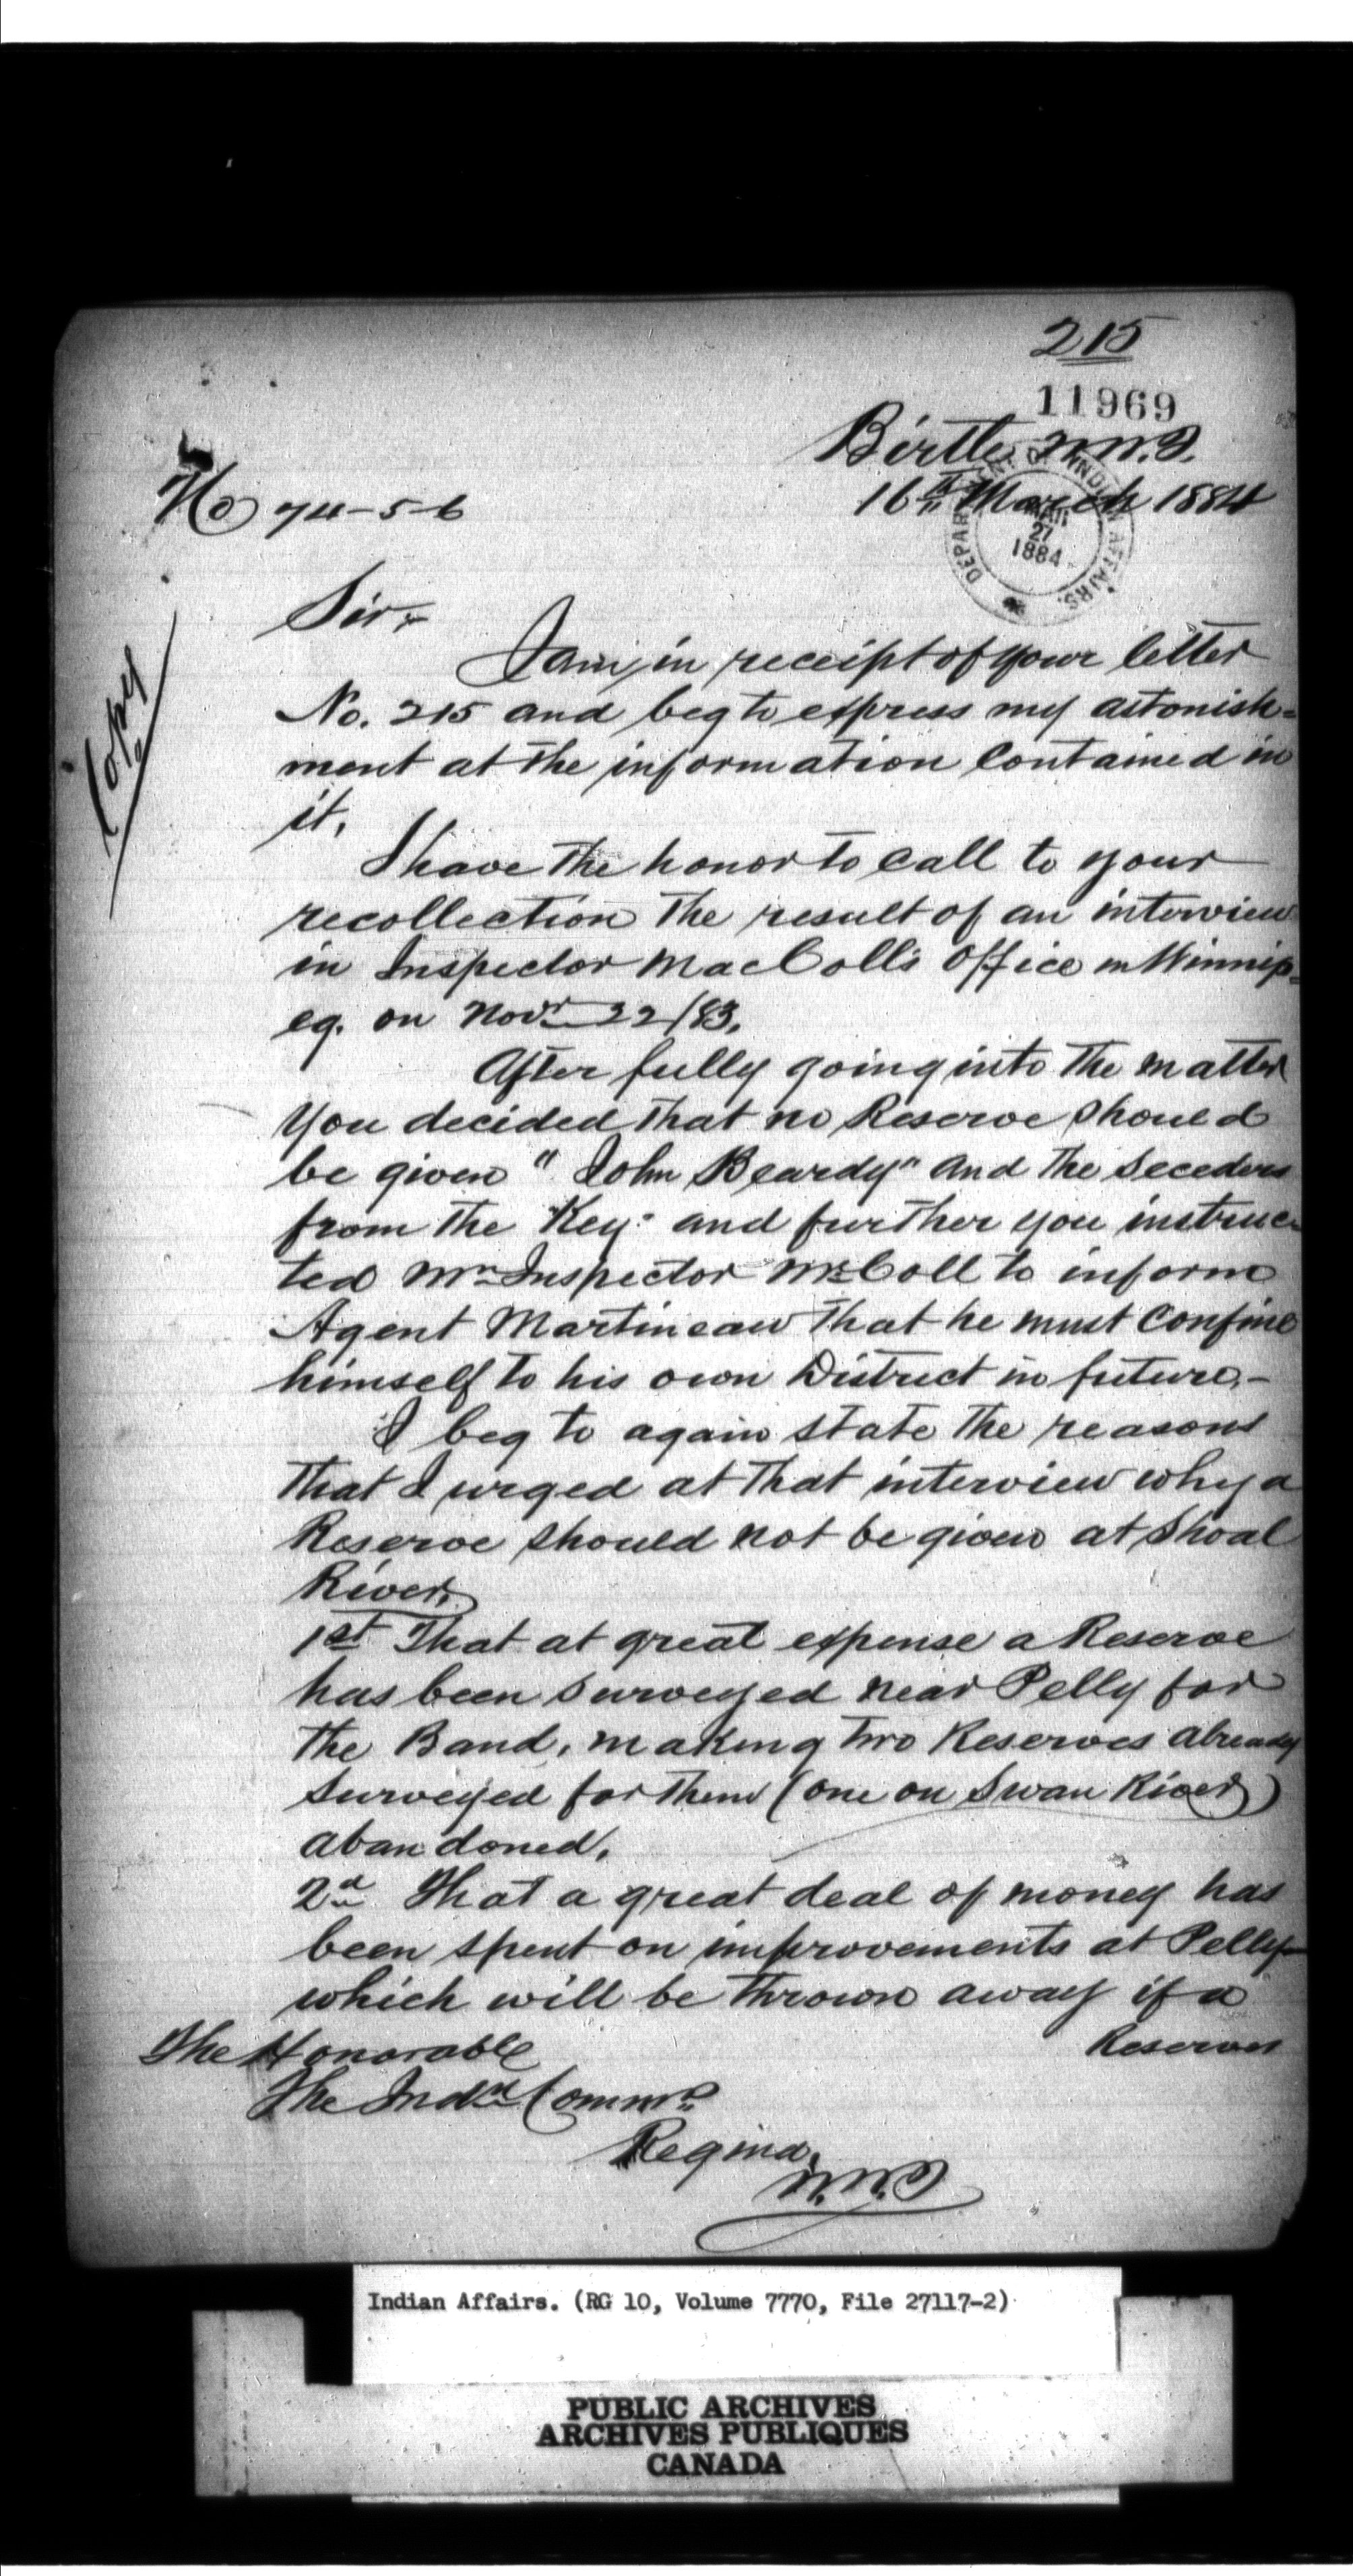 215
11969
Birtle N.W.T.
16th March 1884
DEPARTMENT OF INDIAN AFFAIRS.
MAR
27
1884
No 74-5-6
Copy
Sir,
I am in receipt of your letter
No. 215 and beg to express my astonish=
ment at the information contained in
it.
I have the honor to call to your
recollection the result of an interview
in Inspector MacColl's Office in Winnip=
eg. on Novr 22/83.
After fully going into the matter
You decided that no Reserve should
be given "John Beardy" and the Seceders
from the "Key" and further you instruc-
ted Mr Inspector McColl to inform
Agent Martineau that he must confine
himself to his own District in future.-
I beg to again state the reasons
that I urged at that interview why a
Reserve should not be given at Shoal
River.
1st That at great expense a Reserve
has been surveyed near Pelly for
the Band, making two Reserves already
surveyed for them (one on Swan River)
abandoned.
2d That a great deal of money has
been spent on improvements at Pelly
which will be thrown away if a
Reserve
The Honorable
The Indn Commr
Regina,
N.W.T
Indian Affairs. (RG 10, Volume 7770, File 27117-2)
PUBLIC ARCHIVES
ARCHIVES PUBLIQUES
CANADA